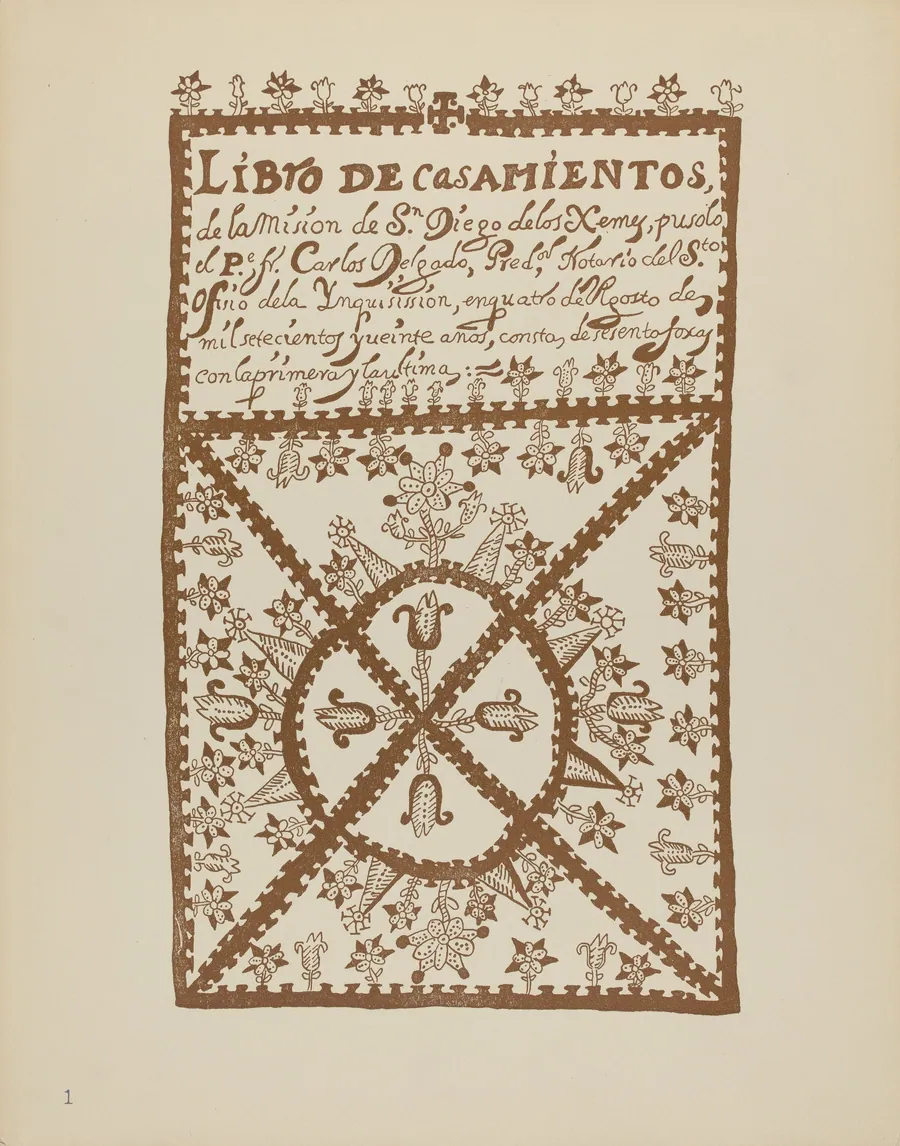 LiBro DE CasAMiENTOS,
de la Mision de Sn. Diego delos Xemes, pusolo
el P.e fr. Carlos Delgado, Pred.or Notario del S.to
Ofisio dela Ynquisission, enquatro de Agosto de
mil setecientos y ueinte años, consta, de sesenta foxas
con laprimera y laultima, :~
1